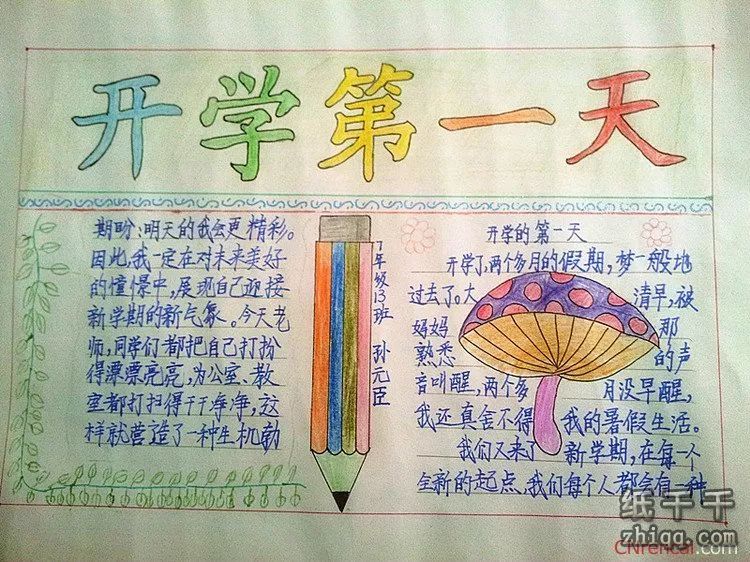 开学第一天
期盼、明天的我会更精彩。
因此,我一定在对未来美好
的憧憬中,展现自己迎接
新学期的新气象。今天老
师,同学们都把自己打扮
得漂漂亮亮,为公室、教
室都打扫得干干净净,这
样就营造了一种生机勃
年级13班 孙元臣
开学的第一天
开学了,两个多月的假期,梦一般地
过去了。大清早,被
妈妈那
熟悉的声
音叫醒,两个多月没早醒,
我还真舍不得我的暑假生活。
我们又来了新学期,在每一个
全新的起点,我们每个人都会有一种
纸千千
zhiqq.com
CNrencai.com